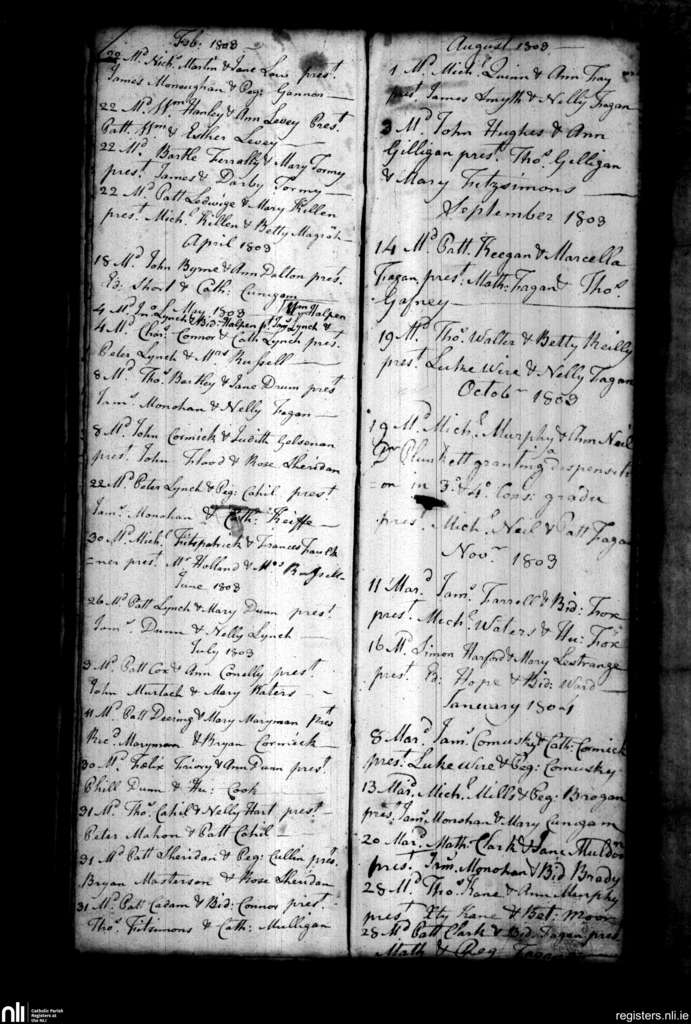 Feb: 1803
22 Md Nich: Martin & Jane Low prest
James Monoughan & Peg: Gannon
22 Md Wm Hanley & Ann Levey Prest
Patt. Wm & Esther Levey
22 Md Bartle Ferrally & Mary Tormy
prest James & Darby Tormy
22 Md Patt Ledwige & Mary Killen
prest Mich: Killen & Betty
April 1803
18 Md John Byrne & Ann Dalton prest
Ed: Short & Cath: Cunigam
May 1803
4 Md Jno Lynch & Bid: Halpen pt Jams Lynch & Wm Halpen
4 Md Chas Connor & Cath Lynch prest
Peter Lynch & Mrs Russell
8 Md Thos Bartley & Jane Drum prest
Jams Monohan & Nelly Fagan
8 Md John Cormick & Judith
prest John Flood & Rose Sheridan
22 Md Peter Lynch & Peg: Cahil prest
Jams Monahan & Cath: Keiffe
30 Md Michl Fitzpatrick & Frances Faulk
=ner prest Mr Holland & Mrs Russell
June 1803
26 Md Patt Lynch & Mary Dunn prest
Jams Dunn & Nelly Lynch
July 1803
3 Md Patt Cox & Ann Conelly prest
John Murtach & Mary Waters
11 Md Patt Deering & Mary Maryman prest
Ricd Maryman & Bryan Cormick
30 Md Felix & Ann Dunn prest
Phill Dunn & Hu: Cook
31 Md Thos Cahil & Nelly Hart prest
Peter Mahon & Patt Cahil
31 Md Patt Sheridan & Peg: Cullin prest
Bryan Masterson & Rose Sheridan
31 Md Patt Cadam & Bid: Connor prest
Thos Fitsimons & Cath: Mulligan
August 1803
1 Md Michl Quinn & Ann Fay
prest James Smyth & Nelly Fagan
3 Md John Hughes & Ann
Gilligan prest Thos Gilligan
& Mary Fitzsimons
September 1803
14 Md Patt. Keegan & Marcella
Fagan prest Math: Fagan & Thos
Gafney
19 Md Thos Walter & Betty Reilly
prest Luke Wire & Nelly Fagan
Octobr 1803
19 Md Michl Murphy & Ann Neil
Dr Plunkett granting dispensati
=on in 3o & 4o Cons: gradu
pres: Michl Neil & Patt Fagan
Novr 1803
11 Mard Jams Farrell & Bid: Fox
prest Michl Waters & Hu: Fox
16 Md Simon Harford & Mary Lestrange
prest Ed: Hope & Bid: Ward
January 1804
8 Mard Jams Comuskey & Cath: Cormick
prest Luke Wire & Peg: Comuskey
13 Mard Michl Mills & Peg: Brogan
prest Jams Monohan & Mary Cunigam
20 Mard Math: Clark & Jane Muldon
prest Monohan & Bid Brady
28 Md Thos Kane & Ann Murphy
prest Xty Kane & Bet: Moore
28 Md Patt Clark & Bid: Fagan prest
Math & Peg
nli
Catholic Parish
Registers at
the NLI
registers.nli.ie